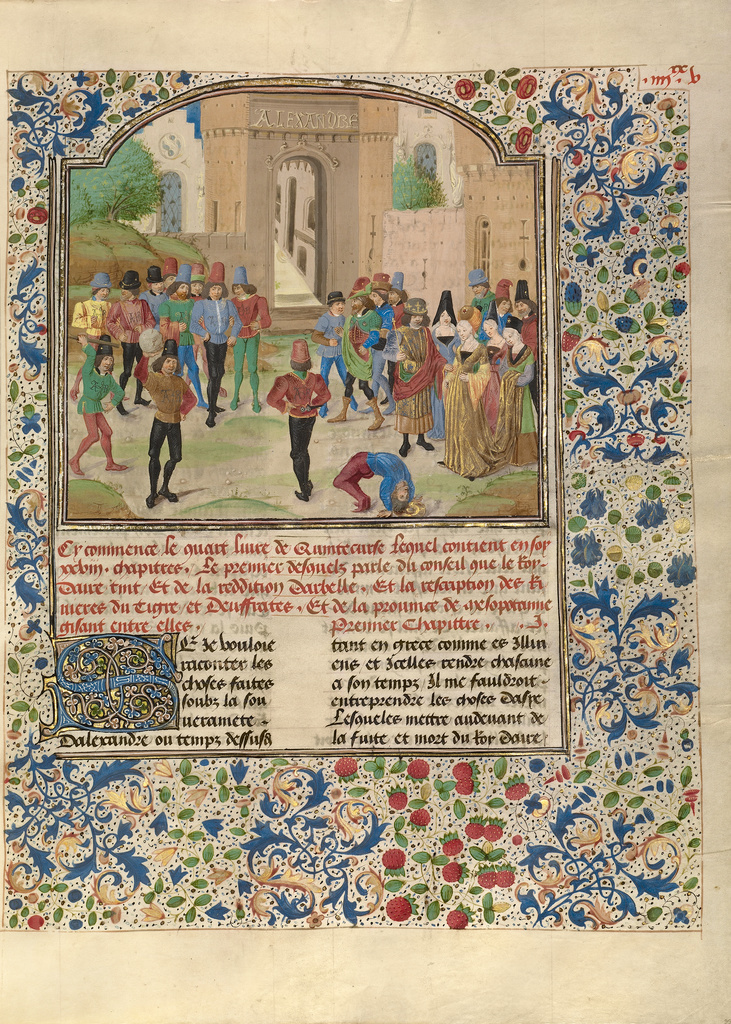 ALEXANDRE
Cy commence le quart livre de Quintecurse lequel contient en soy
xxviii. chapitres. Le premier desquels parle du conseil que le Roy
Daire tint Et de la reddition Darbelle. Et la rescription des Ri
uieres du Tigre et Deuffrates. Et de la prouince de mesopotamie
gisant entre elles. Premier Chapittre. .I.
SE Je vouloie
raconter les
choses faites
soubz la sou
uerainete
Dalexandre ou temps dessusd
tant en grece comme es Illiri
ens et Jcelles rendre chascune
a son temps Il me fauldroit
entreprendre les choses Dasye
Lesqueles mettre auduant de
la fuite et mort du Roy Daire